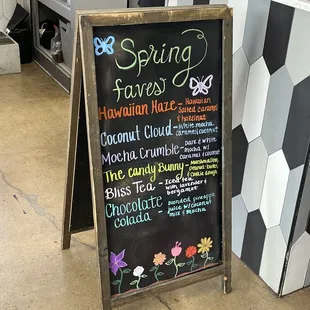 Spring
faves
Hawaiian Haze - Hawaiian
Salted caramel
& hazelnut
Coconut Cloud - white mocha
caramel coconut
Mocha Crumble - Dark & white
mocha w/
caramel &
The Candy Bunny - Marshmallow
cookie dough
Bliss Tea - Iced tea
with lavender &
bergamot
Chocolate - blended pineapple
colada juice w/ coconut
milk & mocha